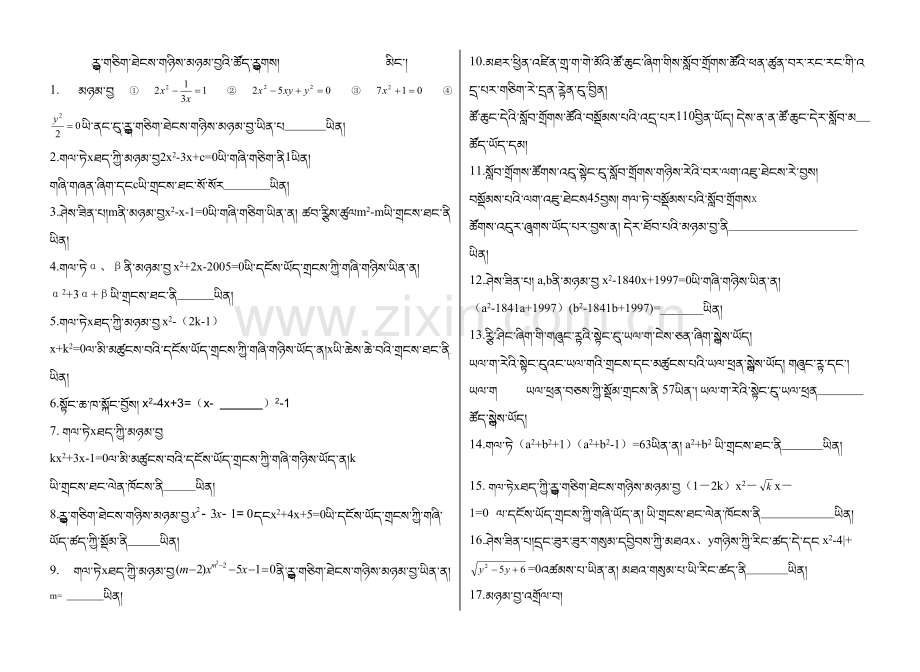 རྒྱ་གཅིག་ཐེངས་གཉིས་མཉམ་བྱའི་ཚོད་རྒྱགས། མིང་།
1. མཉམ་བྱ ① 2x²-1/3x=1 ② 2x²-5xy+y²=0 ③ 7x²+1=0 ④
y²/2=0ཡི་ནང་དུ་རྒྱ་གཅིག་ཐེངས་གཉིས་མཉམ་བྱ་ཡིན་པ_______ཡིན།
2.གལ་ཏེxཐད་ཀྱི་མཉམ་བྱ2x²-3x+c=0ཡི་གཞི་གཅིག་ནི1ཡིན།
གཞི་གཞན་ཞིག་དངcཡི་གྲངས་ཐང་སོ་སོར________ཡིན།
3.ཤེས་ཟིན་པ།mནི་མཉམ་བྱx²-x-1=0ཡི་གཞི་གཅིག་ཡིན་ན། ཚབ་རྩིས་ཚུལm²-mཡི་གྲངས་ཐང་ནི
ཡིན།
4.གལ་ཏེα、βནི་མཉམ་བྱ x²+2x-2005=0ཡི་དངོས་ཡོད་གྲངས་ཀྱི་གཞི་གཉིས་ཡིན་ན།
α²+3α+βཡི་གྲངས་ཐང་ནི______ཡིན།
5.གལ་ཏེxཐད་ཀྱི་མཉམ་བྱ x²-（2k-1）
x+k²=0ལ་མི་མཚུངས་བའི་དངོས་ཡོད་གྲངས་ཀྱི་གཞི་གཉིས་ཡོད་ན།xཡི་ཆེས་ཆེ་བའི་གྲངས་ཐང་ནི
ཡིན།
6.སྟོང་ཆ་ཁ་སྐོང་བྱོས། x²-4x+3=（x- ______）²-1
7. གལ་ཏེxཐད་ཀྱི་མཉམ་བྱ
kx²+3x-1=0ལ་མི་མཚུངས་བའི་དངོས་ཡོད་གྲངས་ཀྱི་གཞི་གཉིས་ཡོད་ན།k
ཡི་གྲངས་ཐང་ལེན་ཁོངས་ནི______ཡིན།
8.རྒྱ་གཅིག་ཐེངས་གཉིས་མཉམ་བྱx²-3x-1=0དངx²+4x+5=0ཡི་དངོས་ཡོད་གྲངས་ཀྱི་གཞི་
ཡོད་ཚད་ཀྱི་སྡོམ་ནི______ཡིན།
9. གལ་ཏེxཐད་ཀྱི་མཉམ་བྱ(m-2)x^(m²-2)-5x-1=0ནི་རྒྱ་གཅིག་ཐེངས་གཉིས་མཉམ་བྱ་ཡིན་ན།
m= ______ཡིན།
10.མཐར་ཕྱིན་འཛིན་གྲྭ་ག་གེ་མོའི་ཚོ་ཆུང་ཞིག་གིས་སློབ་གྲོགས་ཚོའི་ཕན་ཚུན་བར་རང་རང་གི་འ
དྲ་པར་གཅིག་རེ་དྲན་རྟེན་དུ་བྱིན།
ཚོ་ཆུང་དེའི་སློབ་གྲོགས་ཚོའི་བསྡོམས་པའི་འདྲ་པར110བྱིན་ཡོད། དེས་ན་ན་ཚོ་ཆུང་དེར་སློབ་མ__
ཚོད་ཡོད་དམ།
11.སློབ་གྲོགས་ཚོགས་འདུ་སྟེང་དུ་སློབ་གྲོགས་གཉིས་རེའི་བར་ལག་འཇུ་ཐེངས་རེ་བྱས།
བསྡོམས་པའི་ལག་འཇུ་ཐེངས45བྱས། གལ་ཏེ་བསྡོམས་པའི་སློབ་གྲོགསx
ཚོགས་འདུར་ཞུགས་ཡོད་པར་བྱས་ན། དེར་ཐོབ་པའི་མཉམ་བྱ་ནི______________________
ཡིན།
12.ཤེས་ཟིན་པ། a,bནི་མཉམ་བྱ x²-1840x+1997=0ཡི་གཞི་གཉིས་ཡིན་ན།
（a²-1841a+1997）(b²-1841b+1997)=________ཡིན།
13.རྩི་ཤིང་ཞིག་གི་གཞུང་རྟའི་སྟེང་དུ་ཡལ་ག་ངེས་ཅན་ཞིག་སྐྱེས་ཡོད།
ཡལ་ག་རེའི་སྟེང་དུའང་ཡལ་གའི་གྲངས་དང་མཚུངས་པའི་ཡལ་ཕྲན་སྐྱེས་ཡོད། གཞུང་རྟ་དང་།
ཡལ་ག ཡལ་ཕྲན་བཅས་ཀྱི་སྡོམ་གྲངས་ནི 57ཡིན་། ཡལ་ག་རེའི་སྟེང་དུ་ཡལ་ཕྲན________
ཚོད་སྐྱེས་ཡོད།
14.གལ་ཏེ（a²+b²+1）（a²+b²-1）=63ཡིན་ན། a²+b² ཡི་གྲངས་ཐང་ནི_______ཡིན།
15. གལ་ཏེxཐད་ཀྱི་རྒྱ་གཅིག་ཐེངས་གཉིས་མཉམ་བྱ（1－2k）x²－√k x－
1=0 ལ་དངོས་ཡོད་གྲངས་ཀྱི་གཞི་ཡོད་ན། ཡི་གྲངས་ཐང་ལེན་ཁོངས་ནི____________ཡིན།
16.ཤེས་ཟིན་པ།དྲང་ཟུར་ཟུར་གསུམ་དབྱིབས་ཀྱི་མཐའx、yགཉིས་ཀྱི་རིང་ཚད་དེ་དང x²-4|+
√(y²-5y+6)=0འཚམས་པ་ཡིན་ན། མཐའ་གསུམ་པ་ཡི་རིང་ཚད་ནི_______ཡིན།
17.མཉམ་བྱ་འགྲོལ་བ།